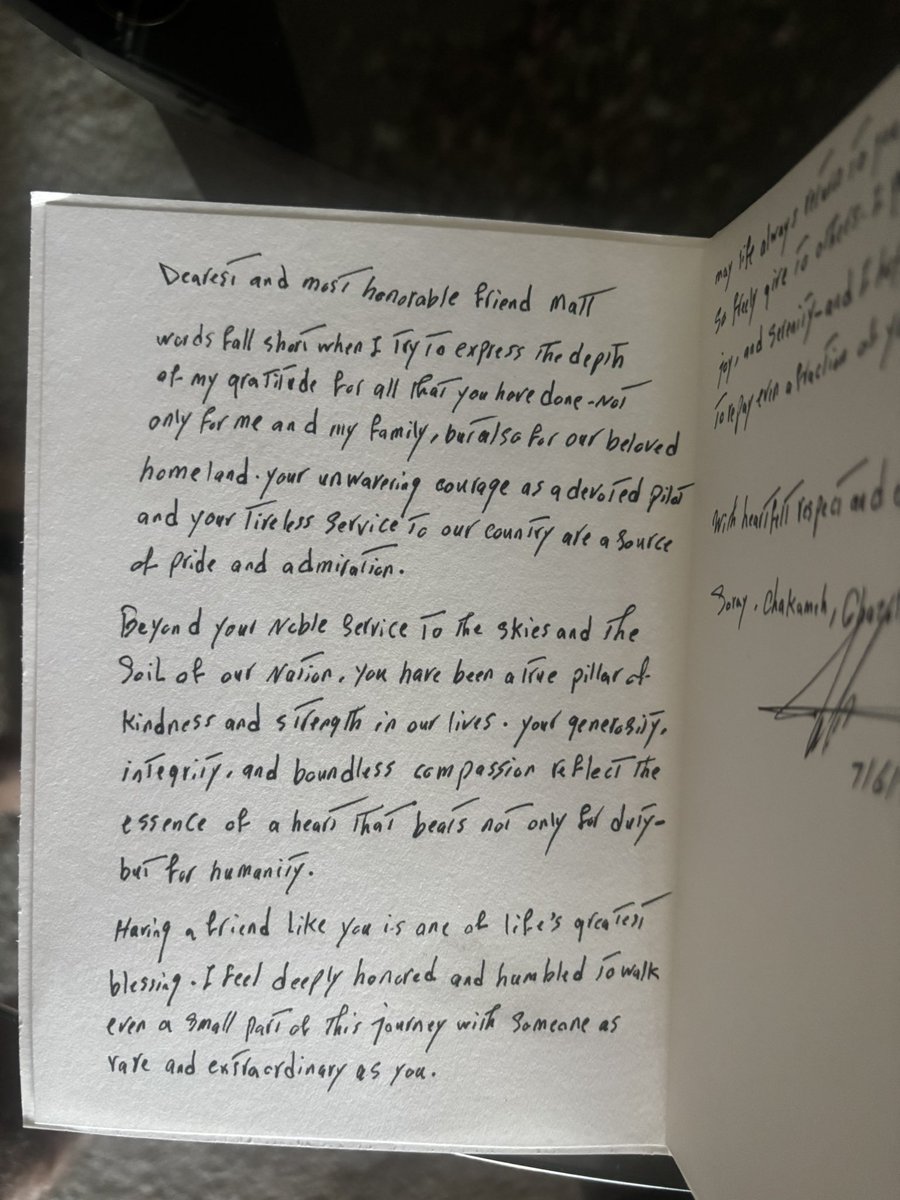 Dearest and most honorable friend Matt
words fall short when I try to express the depth
of my gratitude for all that you have done-Not
only for me and my family, but also for our beloved
homeland. your unwavering courage as a devoted pilot
and your tireless service to our country are a source
of pride and admiration.
Beyond your Noble service to the skies and the
Soil of our Nation, you have been a true pillar of
kindness and strength in our lives. your generosity,
integrity, and boundless compassion reflect the
essence of a heart that beats not only for duty-
but for humanity.
Having a friend like you is one of life's greatest
blessing. I feel deeply honored and humbled to walk
even a small part of this journey with someone as
rare and extraordinary as you.
may life always return to
so freely give to others. I
joy, and serenity-and I
To repay even a fraction of
with heartfelt respect and
Soray, Chakameh,
7/6/